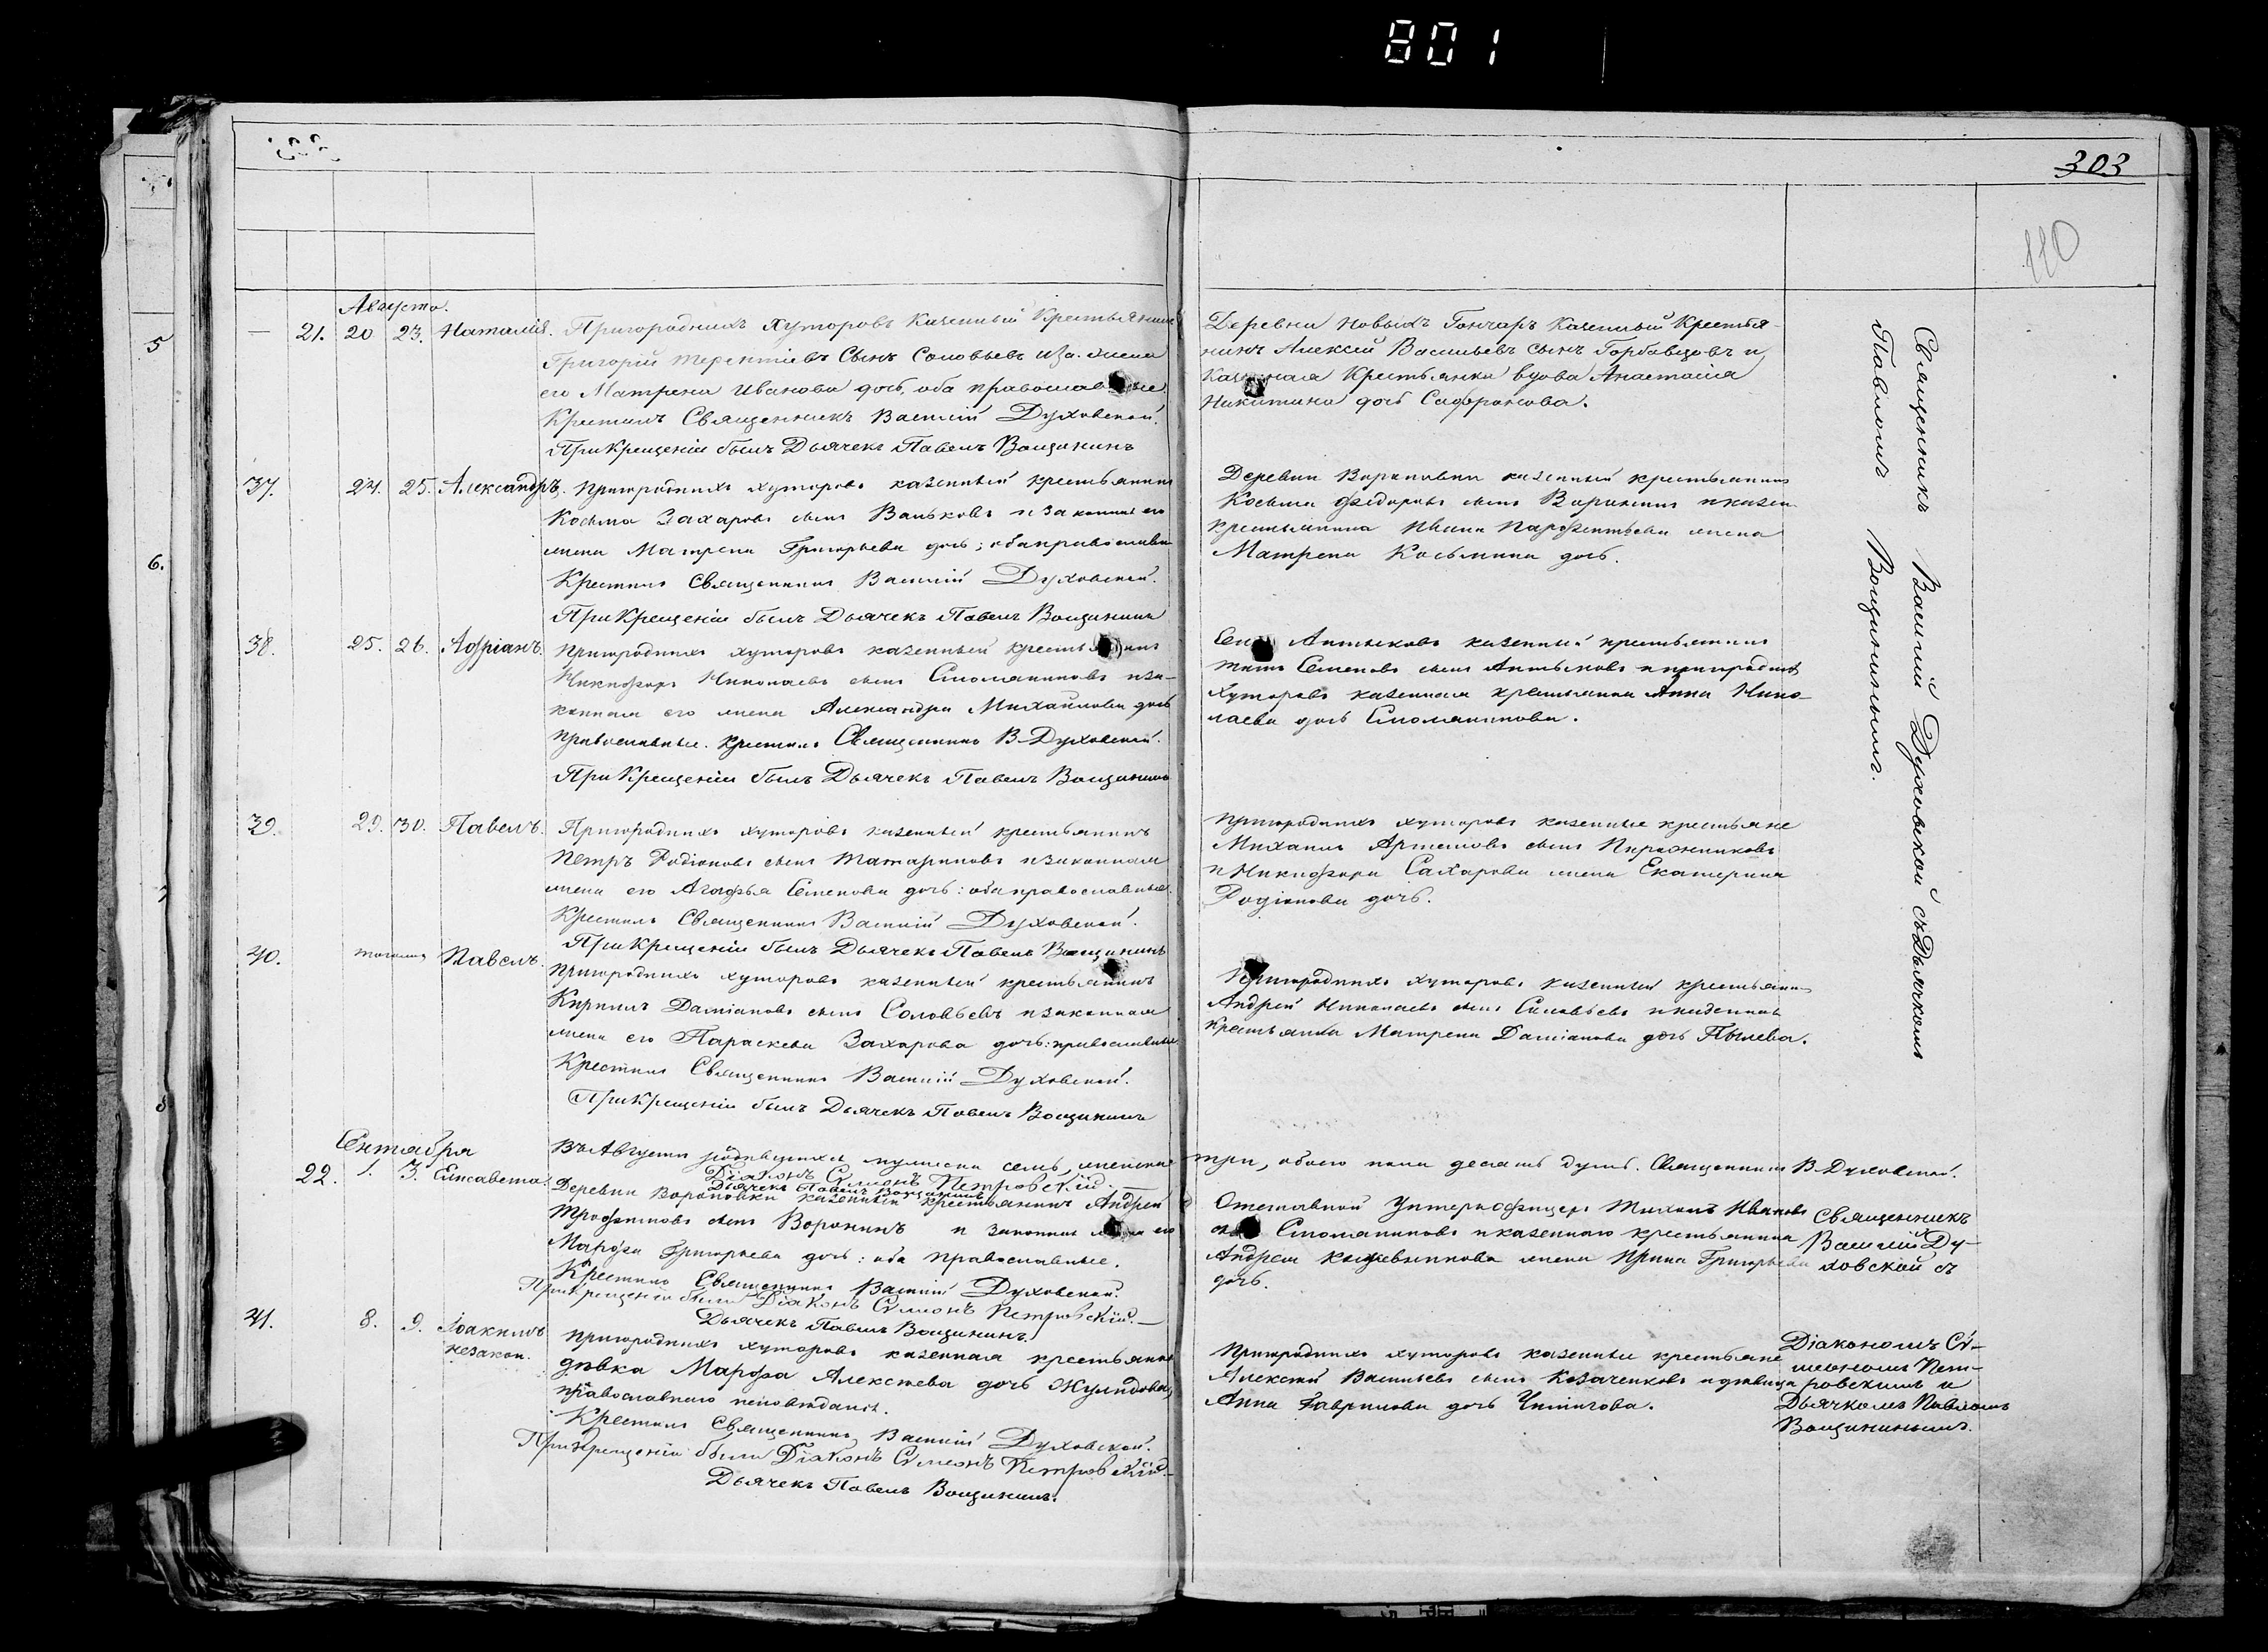 801
303
110
Августа.
— 21. 20 23. Наталія. Пригородныхъ Хуторовъ Казенный Крестьянинъ
Григорій Терентіевъ Сынъ Соловьевъ и за. жена
его Матрена Иванова дочь, оба православные.
Крестилъ Священникъ Василій Духовской.
При Крещеніи былъ Дьячекъ Павелъ Вощининъ
Деревни Новыхъ Гончаръ Казенный Крестья-
нинъ Алексей Васильевъ сынъ Горбавцовъ и
Казенная Крестьянка вдова Анастасія
Никитина дочь Сафронова.
37. 24. 25. Александръ. Пригородныхъ хуторовъ казенный крестьянинъ
Косьма Захаровъ сынъ Ваньковъ и законная его
жена Матрена Григорьева дочь; оба православные
Крестилъ Священникъ Василій Духовской.
При Крещеніи былъ Дьячекъ Павелъ Вощининъ
Деревни Вороновки казенный крестьянинъ
Косьма Федоровъ сынъ Воронинъ и казен.
крестьянина Ивана Парфентьева жена
Матрена Косьмина дочь.
38. 25. 26. Адріанъ. Пригородныхъ хуторовъ казенный крестьянинъ
Никифоръ Николаевъ сынъ Стомалиновъ и за-
конная его жена Александра Михайлова дочь
православные. Крестилъ Священникъ В. Духовской.
При Крещеніи былъ Дьячекъ Павелъ Вощининъ
Антыковъ казенный крестьянинъ
Титъ Семеновъ сынъ Антыковъ и пригородныхъ
Хуторовъ казенная крестьянка Анна Нико-
лаева дочь Стомалинова.
39. 29. 30. Павелъ. Пригородныхъ хуторовъ казенный крестьянинъ
Петръ Родіоновъ сынъ Татариновъ и законная
жена его Агафья Семенова дочь: оба православные.
Крестилъ Священникъ Василій Духовской.
При Крещеніи былъ Дьячекъ Павелъ Вощининъ
Пригородныхъ хуторовъ казенные крестьяне
Михаилъ Артемовъ сынъ Пирожниковъ
и Никифора Сахарова жена Екатерина
Родіонова дочь.
40. тогожъ Павелъ. Пригородныхъ хуторовъ казенный крестьянинъ
Кирилъ Даміановъ сынъ Соловьевъ и законная
жена его Параскева Захарова дочь: православные
Крестилъ Священникъ Василій Духовской.
При Крещеніи былъ Дьячекъ Павелъ Вощининъ
Пригородныхъ хуторовъ казенный крестьянинъ
Андрей Николаевъ сынъ Соловьевъ и казенная
Крестьянка Матрена Даміанова дочь Пылева.
Священникъ Василій Духовской съ Дьячкомъ
Павломъ Вощининымъ.
Въ Августѣ родившихся мужеска семь, женска три, обоего пола десять душъ. Священникъ В. Духовской.
Діаконъ Сѵмеонъ Петровскій.
Дьячекъ Павелъ Вощининъ
Сентября
22. 1. 3. Елисавета. Деревни Вороновки казенный крестьянинъ Андрей
Трофимовъ сынъ Воронинъ и законная жена его
Марфа Григорьева дочь: оба православные.
Крестилъ Священникъ Василій Духовской.
При Крещеніи были Діаконъ Сѵмеонъ Петровскій.—
Дьячекъ Павелъ Вощининъ.
Отставной Унтерофицеръ Тихонъ Ивановъ
Стомалиновъ и казеннаго крестьянина
Андрея жена Ирина Григорьева
дочь.
Священникъ
Василій Ду-
ховской съ
Діакономъ Сѵ-
меономъ Пет-
ровскимъ и
Дьячкомъ Павломъ
Вощининымъ.
41. 8. 9. Іоакимъ незакон. Пригородныхъ хуторовъ казенная крестьянка
дѣвка Марфа Алексѣева дочь Жулидова,
православнаго исповѣданія.
Крестилъ Священникъ Василій Духовской.
При Крещеніи были Діаконъ Сѵмеонъ Петровскій.—
Дьячекъ Павелъ Вощининъ.
Пригородныхъ хуторовъ казенные крестьяне
Алексѣй Васильевъ сынъ Козаченковъ и дѣвица
Анна Гаврилова дочь Чипигова.
5
6.
7
8